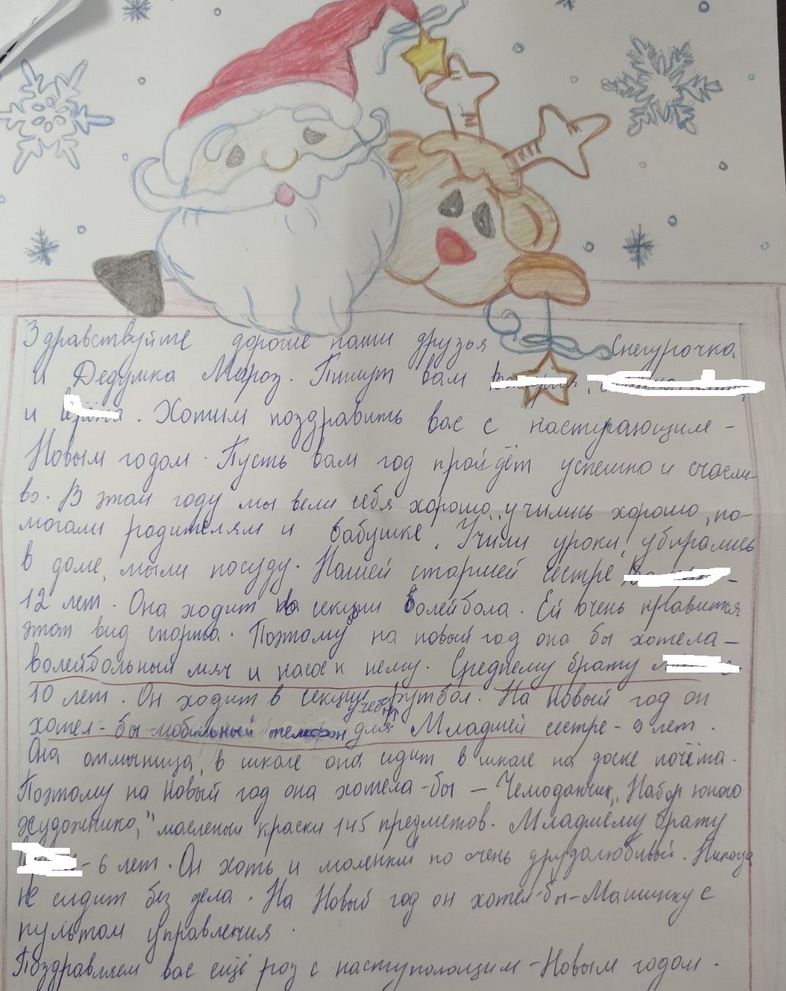 Здравствуйте дорогие наши друзья Снегурочка
и Дедушка Мороз. Пишут вам
и . Хотим поздравить вас с наступающим-
Новым годом. Пусть вам год пройдёт успешно и счасли-
во. В этом году мы вели себя хорошо, учились хорошо, по-
могали родителям и бабушке. Учили уроки, убирались
в доме, мыли посуду. Нашей старшей сестре -
12 лет. Она ходит на секции волейбола. Ей очень нравится
этот вид спорта. Поэтому на новый год она бы хотела-
волейбольный мяч и насос к нему. Среднему брату
10 лет. Он ходит в секцию футбол. На Новый год он
хотел-бы мобильный телефон для учебы Младшей сестре - 9 лет.
Она отличница, в школе она сидит в школе на доске почёта.
Поэтому на Новый год она хотела-бы - Чемоданчик, "Набор юного
художнико," масленыи краски 145 предметов. Младшему брату
- 6 лет. Он хоть и моленкий но очень друдолюбивый. Никогда
не сидит без дела. На Новый год он хотел-бы-Машинку с
пультом управления.
Поздравляем вас ещё роз с наступоющим-Новым годом.